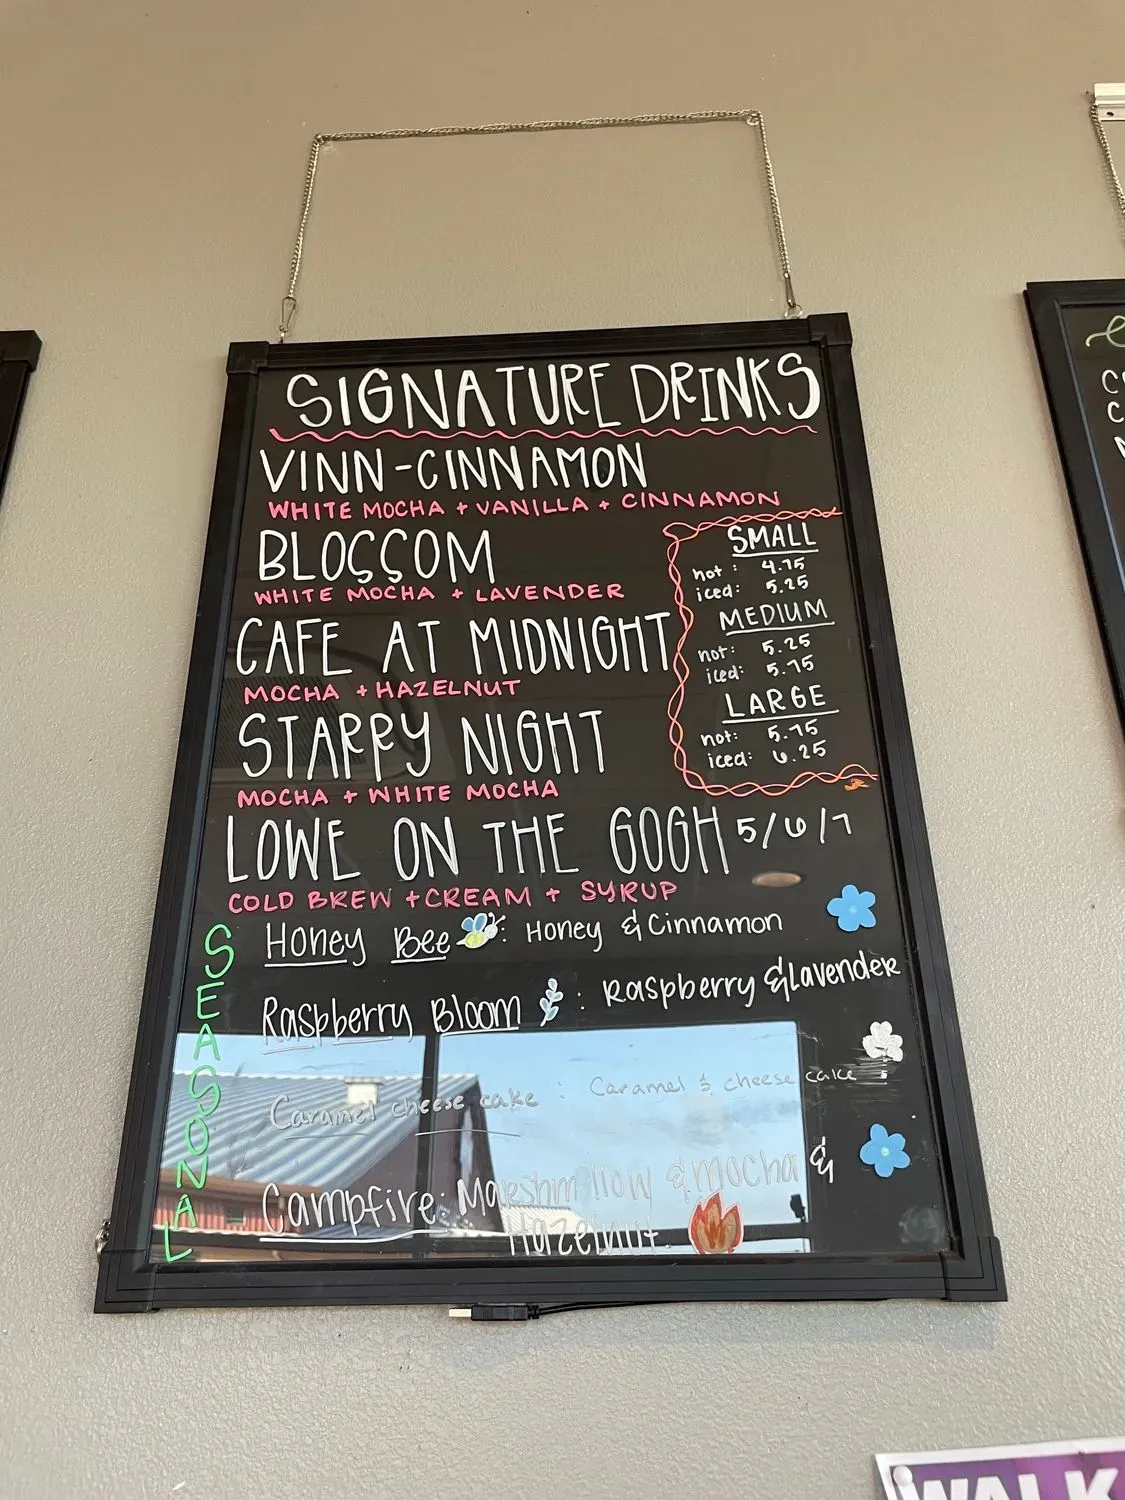 SIGNATURE DRINKS
VINN-CINNAMON
WHITE MOCHA + VANILLA + CINNAMON
BLOSSOM
WHITE MOCHA + LAVENDER
CAFE AT MIDNIGHT
MOCHA + HAZELNUT
STARRY NIGHT
MOCHA + WHITE MOCHA
SMALL
hot: 4.75
iced: 5.25
MEDIUM
hot: 5.25
iced: 5.75
LARGE
hot: 5.75
iced: 6.25
LOWE ON THE GOGH 5/6/7
COLD BREW + CREAM + SYRUP
SEASONAL
Honey Bee: Honey & Cinnamon
Raspberry Bloom: Raspberry & lavender
Caramel cheese cake: Caramel & cheese cake
Campfire: Mareshmallow & mocha &
Hazelnut
WALK